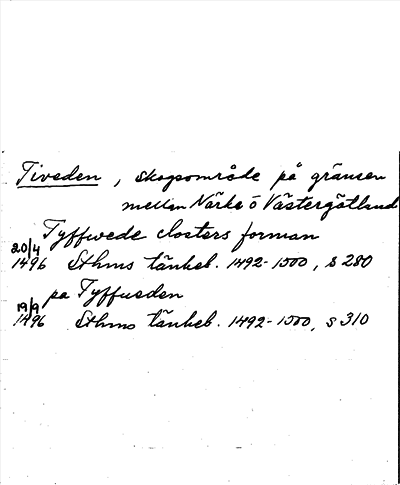 Tiveden, skogsområde på gränsen
mellan Närke o Västergötland
Tyffwede closters forman
20/4
1496 Sthms tänkeb. 1492-1500, s 280
pa Tyffueden
19/9
1496 Sthms tänkeb. 1492-1500, s 310